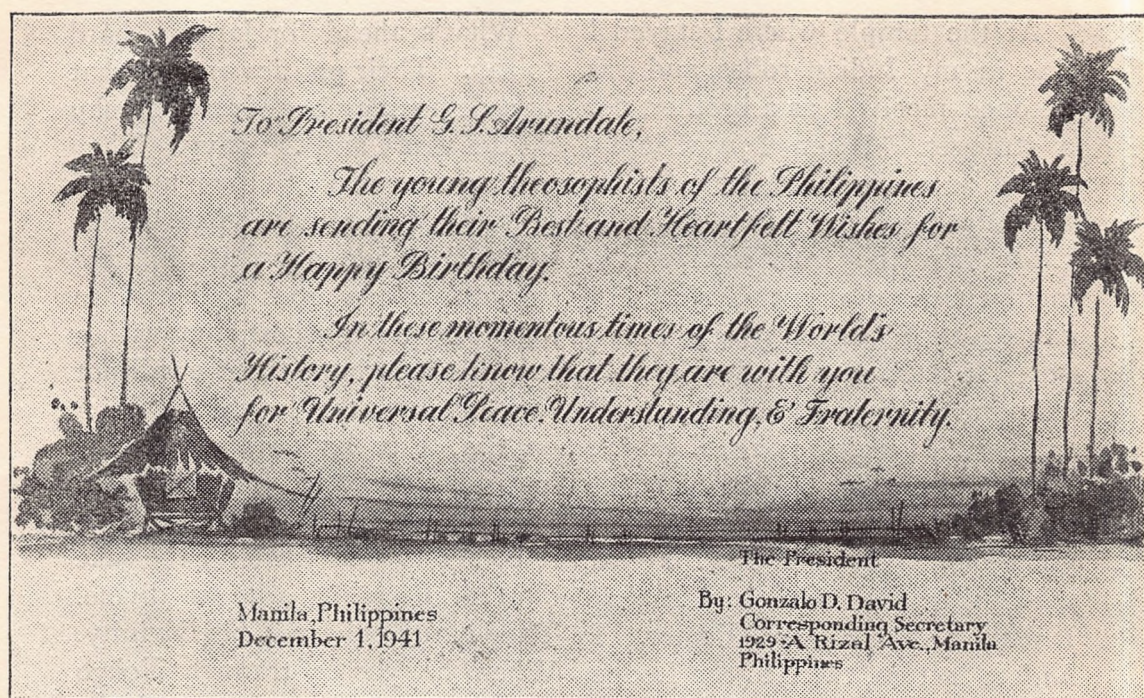 To President G. S. Arundale,
The young theosophists of the Philippines
are sending their Best and Heartfelt Wishes for
a Happy Birthday.
In these momentous times of the World's
History, please know that they are with you
for Universal Peace, Understanding, & Fraternity.
The President
Manila, Philippines
December 1, 1941
By: Gonzalo D. David
Corresponding Secretary
1929-A Rizal Ave., Manila
Philippines